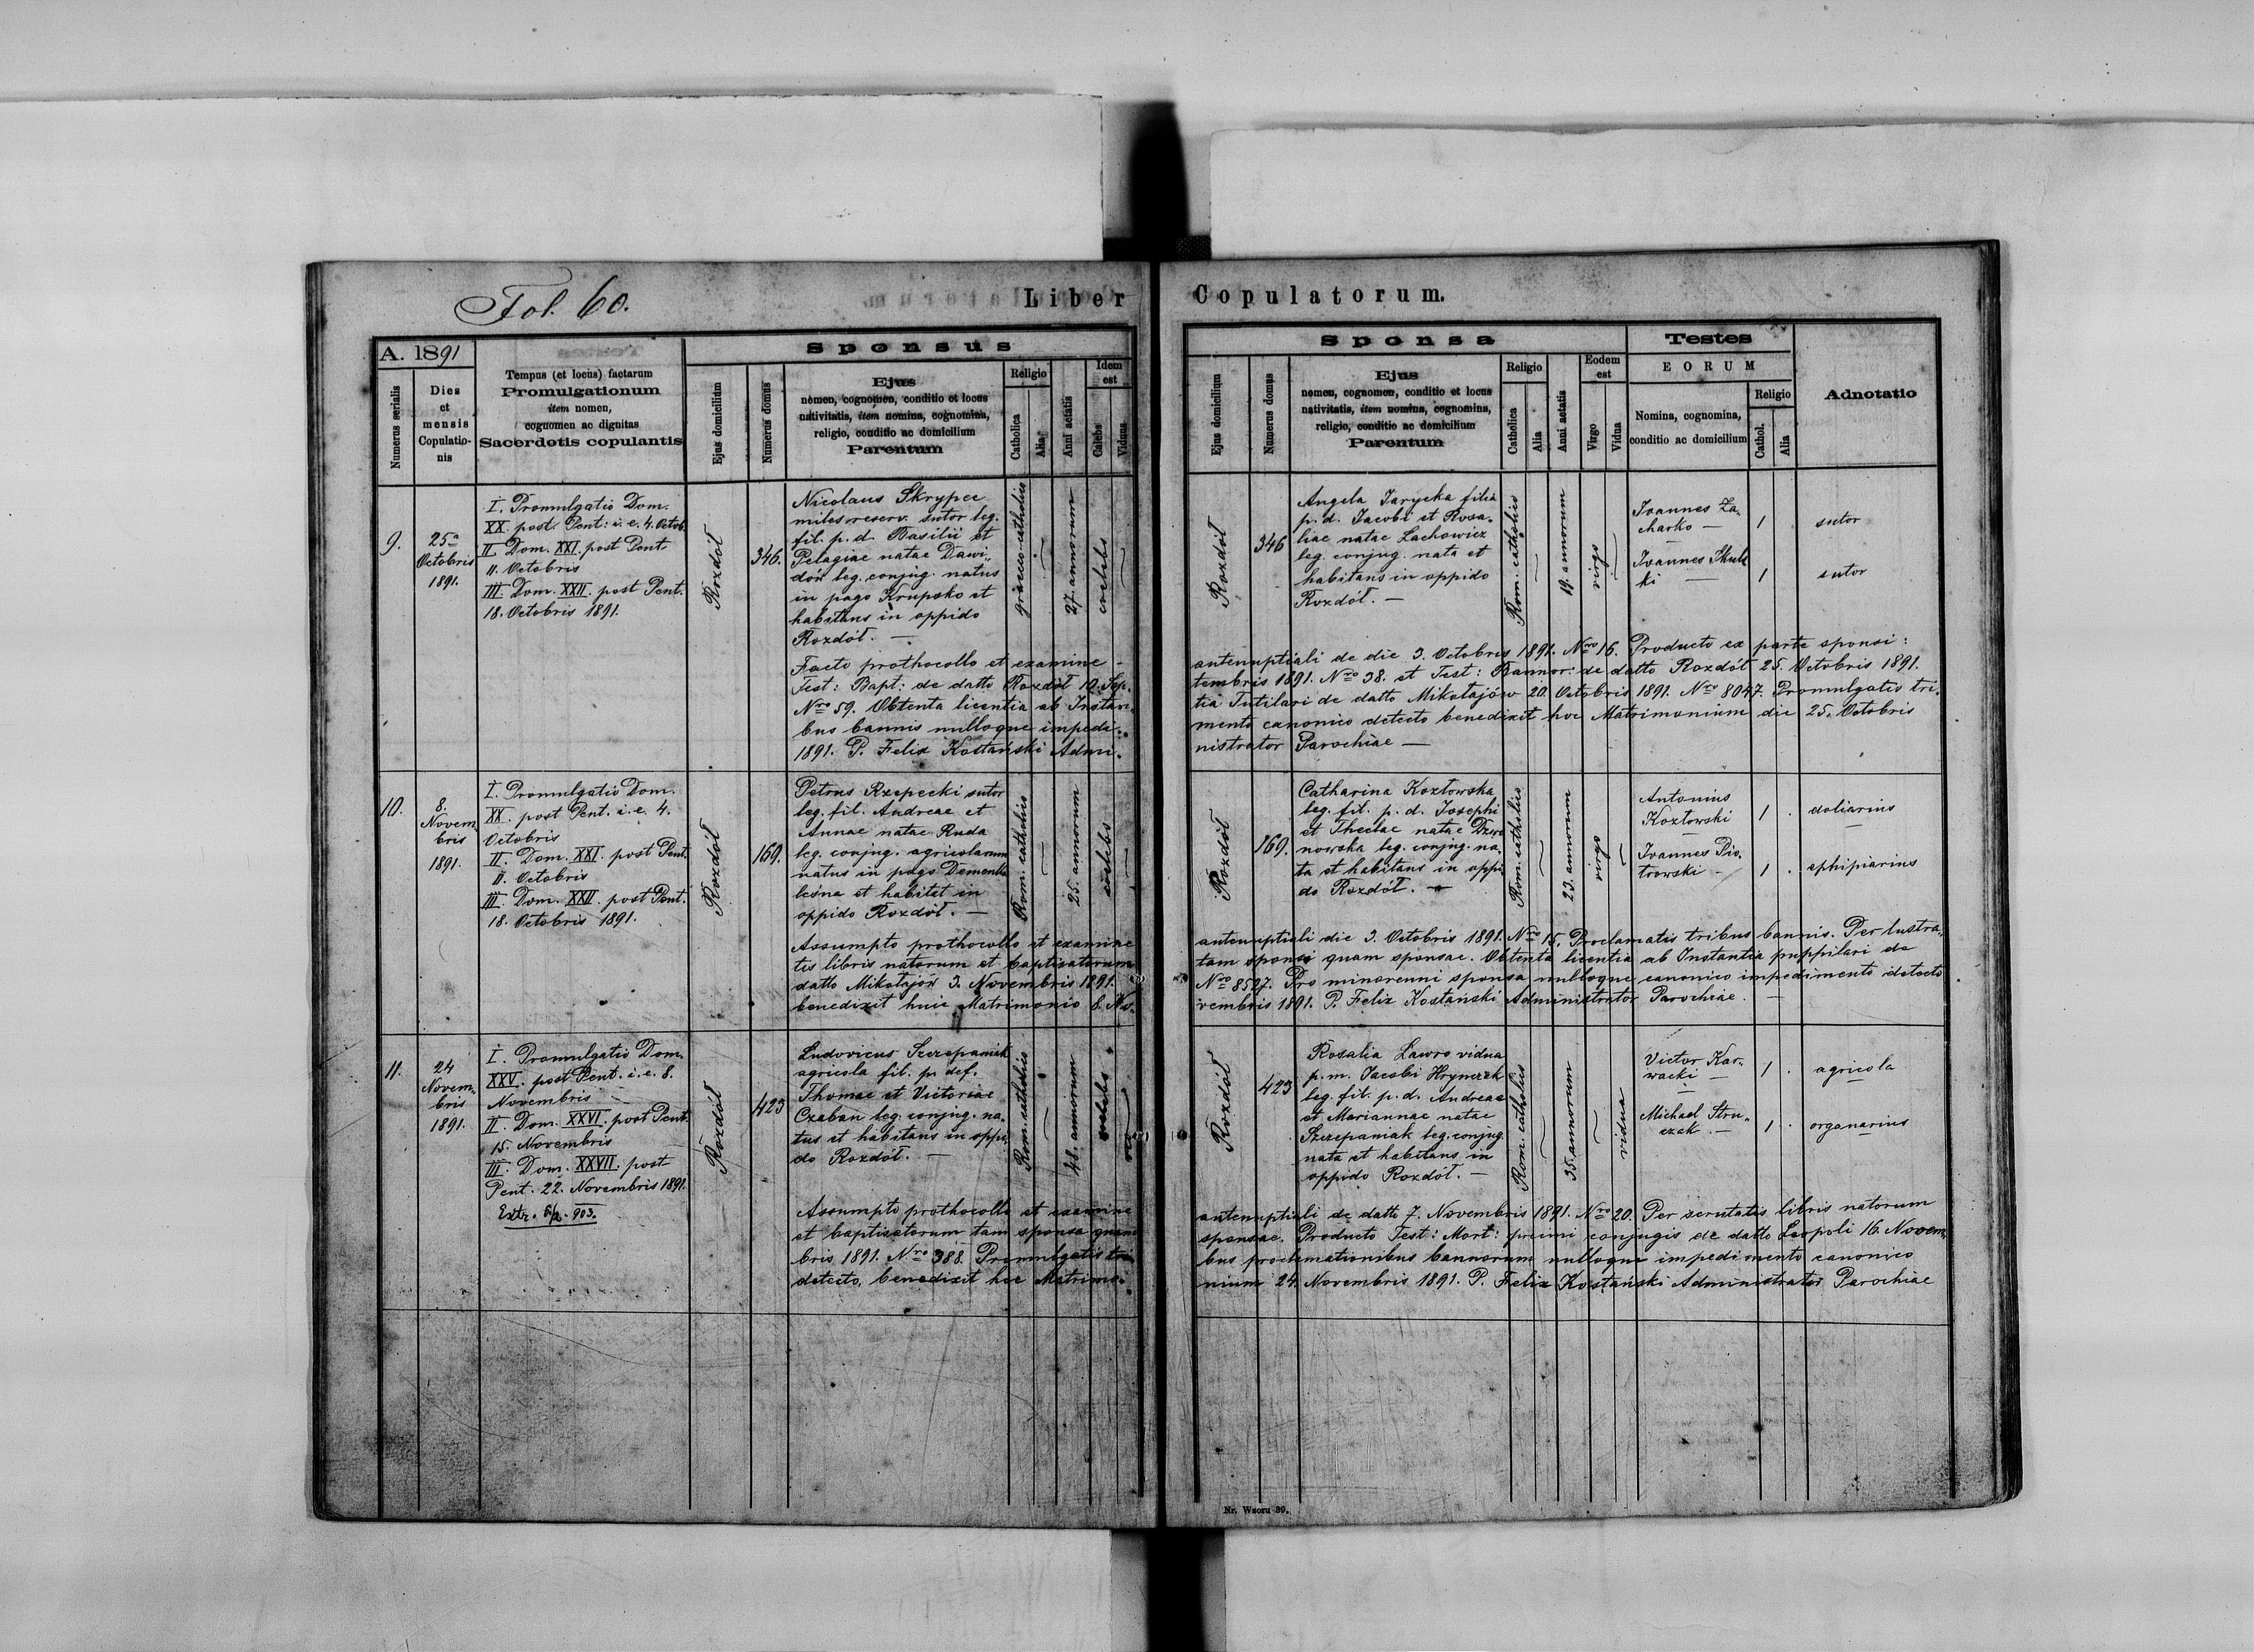 Fol. 60.
Liber Copulatorum.
A. 1891
Numerus serialis
Dies
et
mensis
Copulatio-
nis
Tempus (et locus) factarum
Promulgationum
item nomen,
cognomen ac dignitas
Sacerdotis copulantis
Sponsus
Ejus domicilium
Numerus domus
Ejus
nomen, cognomen, conditio et locus
nativitatis, item nomina, cognomina,
religio, conditio ac domicilium
Parentum
Religio
Catholica
Alia
Anni aetatis
Idem
est
Calebs
Viduus
Sponsa
Ejus domicilium
Numerus domus
Ejus
nomen, cognomen, conditio et locus
nativitatis, item nomina, cognomina,
religio, conditio ac domicilium
Parentum
Religio
Catholica
Alia
Anni aetatis
Eodem
est
Virgo
Vidua
Testes
EORUM
Nomina, cognomina,
conditio ac domicilium
Religio
Cathol.
Alia
Adnotatio
9.
25a
Octobris
1891.
I. Promulgatio Dom.
XX. post Pent: i. e. 4. Octob.
II. Dom. XXI. post Pent.
11. Octobris
III. Dom. XXII. post Pent.
18. Octobris 1891.
Rozdół
346.
Nicolaus Skrypec
miles reserv. sutor leg.
fil. p. d. Basilii et
Pelagiae natae Dawi„
dón leg. conjug. natus
in pago Krupsko et
habitans in oppido
Rozdół. —
graeco catholicus
27. annorum
coelebs
Rozdół
346
Angela Jarycka filia
p. d. Jacobi et Rosa„
liae natae Lachowicz
leg. conjug. nata et
habitans in oppido
Rozdół. —
Rom. catholica
19. annorum
virgo
Joannes Za„
charko —
1
sutor
Joannes Skuls
ki —
1
sutor
Facto prothocollo et examine antenuptiali de die 3. Octobris 1891. Nro 16. Producto ex parte sponsi:
Test: Bapt: de datto Rozdół 19. Sep„tembris 1891. Nro 38. et Test: Bannor: de datto Rozdół 25. Octobris 1891.
Nro 59. Obtenta licentia ab Instan„tia Tutilari de datto Mikołajów 20. Octobris 1891. Nro 8047. Promulgatis tri„
bus bannis nulloque impedi„mento canonico detecto benedixit hoc Matrimonium die 25. Octobris
1891. P. Felix Kostański Admi„nistrator Parochiae —
10.
8.
Novem„
bris
1891.
I. Promulgatio Dom.
XX. post Pent. i. e. 4.
Octobris
II. Dom. XXI. post Pent.
11. Octobris
III. Dom. XXII. post Pent.
18. Octobris 1891.
Rozdół
169.
Petrus Rzepecki sutor
leg. fil. Andreae et
Annae natae Ruda
leg. conjug. agricolarum
natus in pago Dementka
leśna et habitat in
oppido Rozdół. —
Rom. catholicus
25. annorum
coelebs
Rozdół
169.
Catharina Kozłowska
leg. fil. p. d. Josephi
et Theclae natae Dzwo
nowska leg. conjug. na„
ta et habitans in oppi
do Rozdół. —
Rom. catholica
23. annorum
virgo
Antonius
Kozłowski
1 .
doliarius
Joannes Pio„
trowski —
1 .
ephipiarius
Assumpto prothocollo et examine antenuptiali die 3. Octobris 1891. Nro 15. Proclamatis tribus bannis. Per lustra„
tis libris natorum et baptisatorum tam sponsi quam sponsae. Obtenta licentia ab Instantia puppilari de
datto Mikołajów 3. Novembris 1891. Nro 8527. Pro minorenni sponsa nulloque canonico impedimento detecto
benedixit huic Matrimonio 8. No„vembris 1891. P. Felix Kostański Administrator Parochiae. —
11.
24
Novem„
bris
1891.
I. Promulgatio Dom.
XXV. post Pent. i. e. 8.
Novembris
II. Dom. XXVI. post Pent.
15. Novembris
III. Dom. XXVII. post
Pent. 22. Novembris 1891.
Rozdół
423
Ludovicus Szczepaniak
agricola fil. p. def.
Thomae et Victoriae
Czaban leg. conjug. na„
tus et habitans in oppi„
do Rozdół. —
Rom. catholicus
48. annorum
coelebs
Rozdół
423
Rosalia Lawro vidua
p. m. Jacobi Hrynczak
leg. fil. p. d. Andreae
et Mariannae natae
Szczepaniak leg. conjug.
nata et habitans in
oppido Rozdół. —
Rom. catholica
35. annorum
vidua
Victor Kar„
wacki —
1 .
agricola
Michael Stru„
czak —
1 .
organarius
Assumpto prothocollo et examine antenuptiali de datto 7. Novembris 1891. Nro 20. Per scrutatis Libris natorum
et baptisatorum tam sponsa quam sponsae. Producto Test: Mort: primi conjugis de datto Leopoli 16. Novem„
bris 1891. Nro 388. Promulgatis tri„bus proclamationibus bannorum nulloque impedimento canonico
detecto, benedixit hoc Matrimo„nium 24. Novembris 1891. P. Felix Kostański Administrator Parochiae
Nr. Wzoru 39.